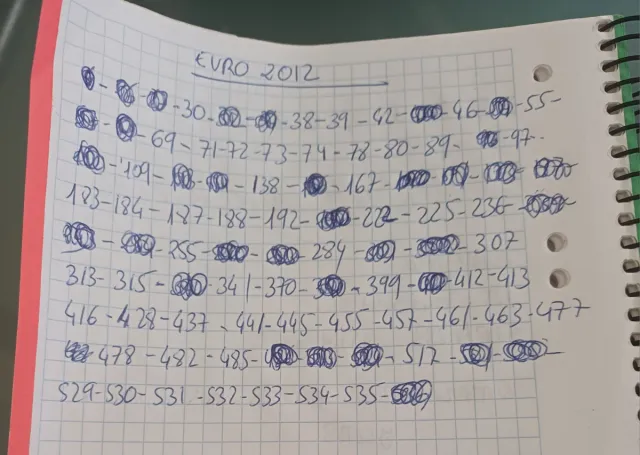 EURO 2012
- - -30- - -38-39-42- -46- -55-
- -69-71-72-73-74-78-80-89- -97-
-109- - -138- -167- - - -
183-184-187-188-192- -222-225-236-
- -255- - -284- - -307
313-315- -341-370- -399- -412-413
416-428-437-441-445-455-457-461-463-477
-478-482-485- - - -517- -
529-530-531-532-533-534-535-